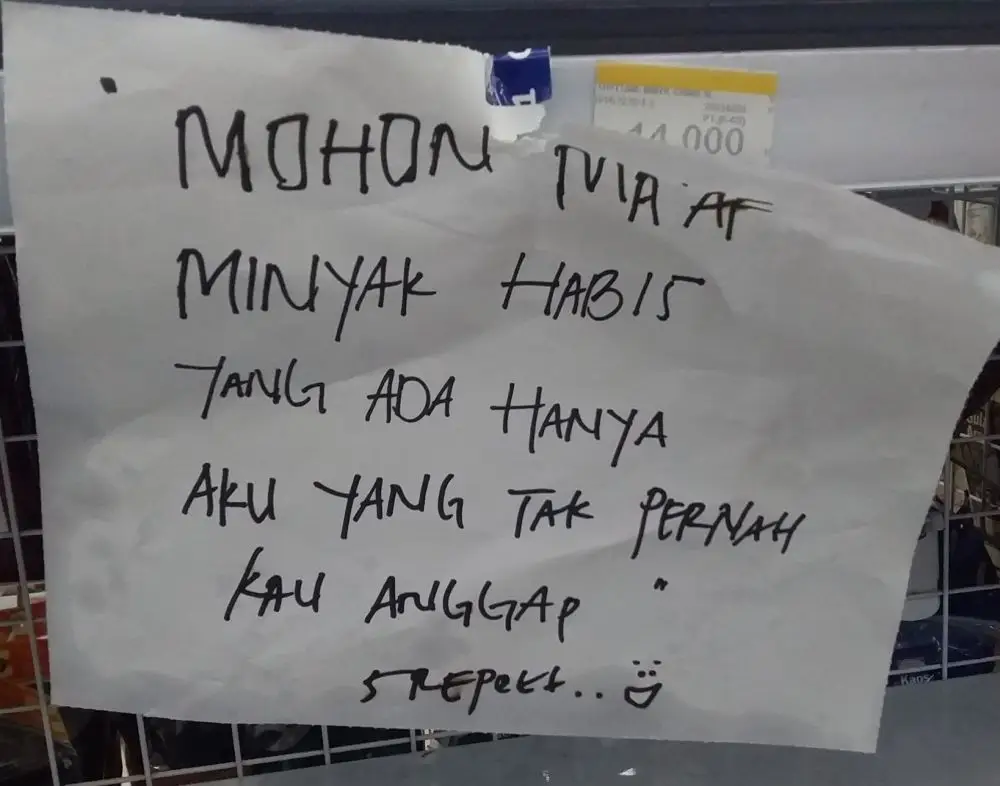 MOHON MA'AF
MINYAK HABIS
YANG ADA HANYA
AKU YANG TAK PERNAH
KAU ANGGAP "
SREPETT.. 
14.000
Kaos